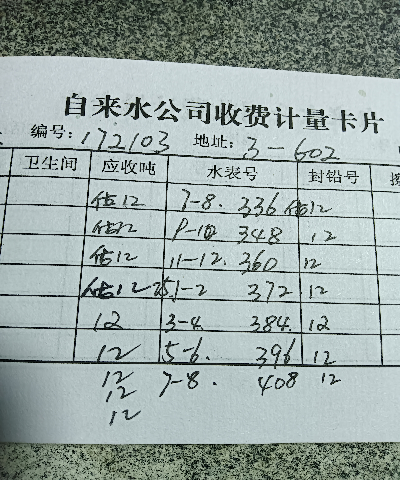 自来水公司收费计量卡片
编号: 172103 地址: 3-602
卫生间 应收吨 水表号 封铅号
估12 7-8. 336 估12
估12 9-10 348 12
估12 11-12. 360 12
估12-25. 1-2 372 12
12 3-4. 384. 12
12 5-6. 396 12
12 7-8. 408 12
12
12